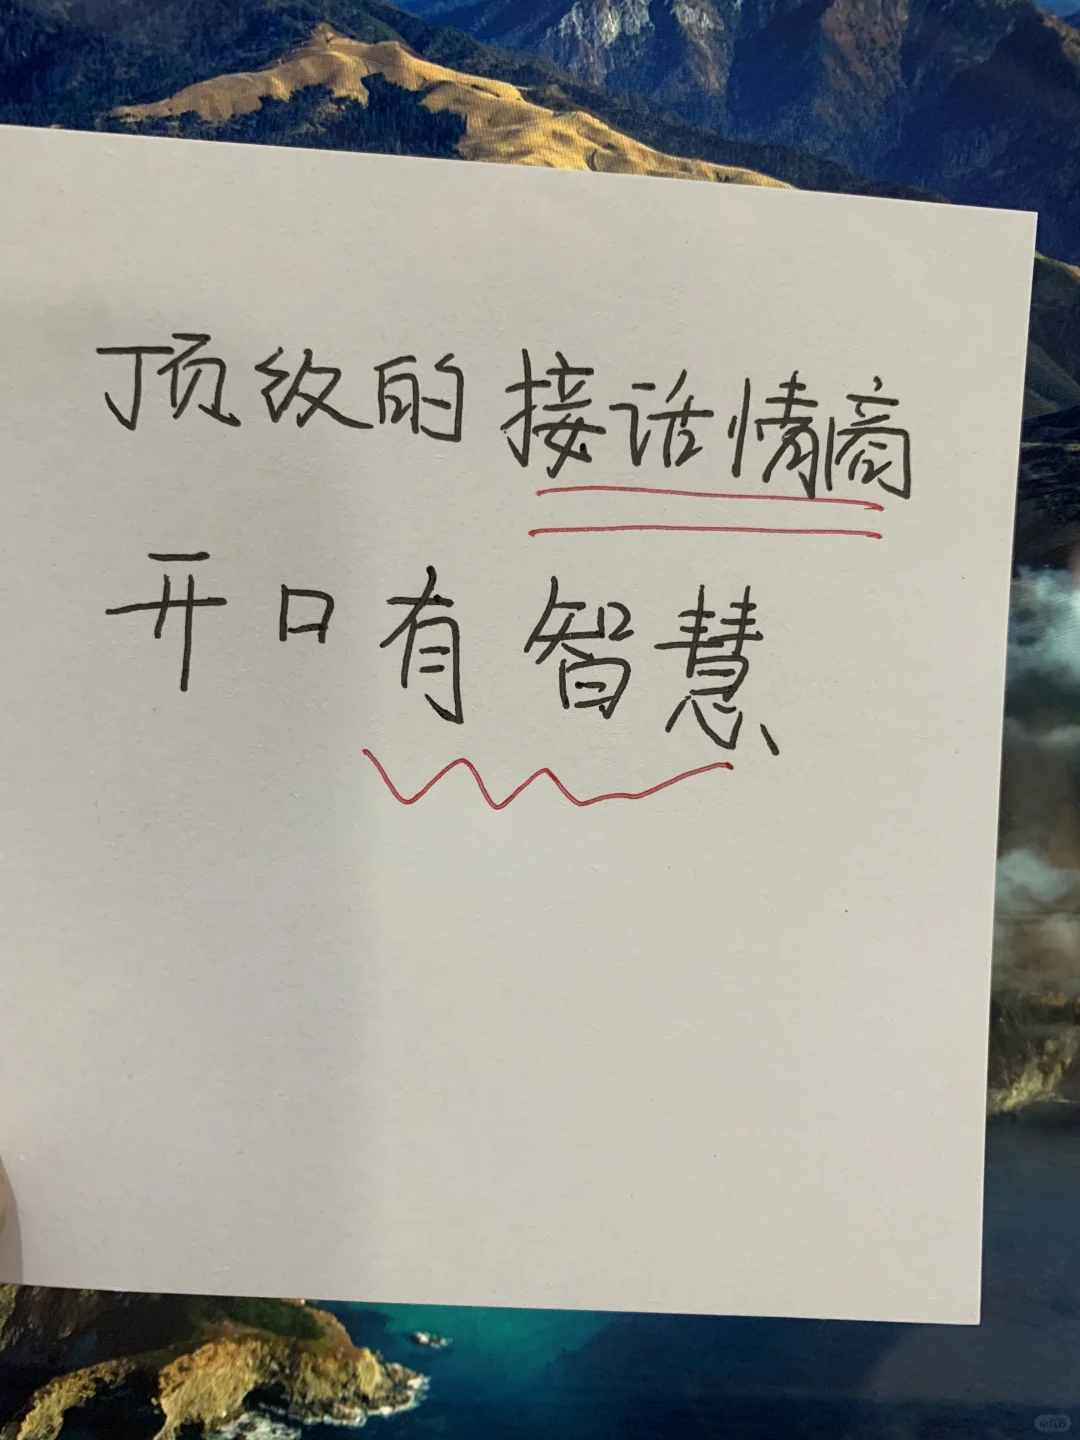 顶级的接话情商
开口有智慧
小红书